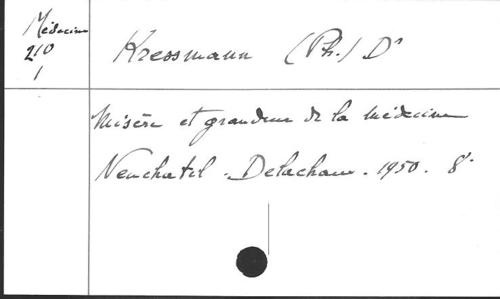 Médecine
210
1
Kressmann (Ph.) Dr
Misère et grandeur de la médecine
Neuchatel - Delachaux. 1950. 8°.